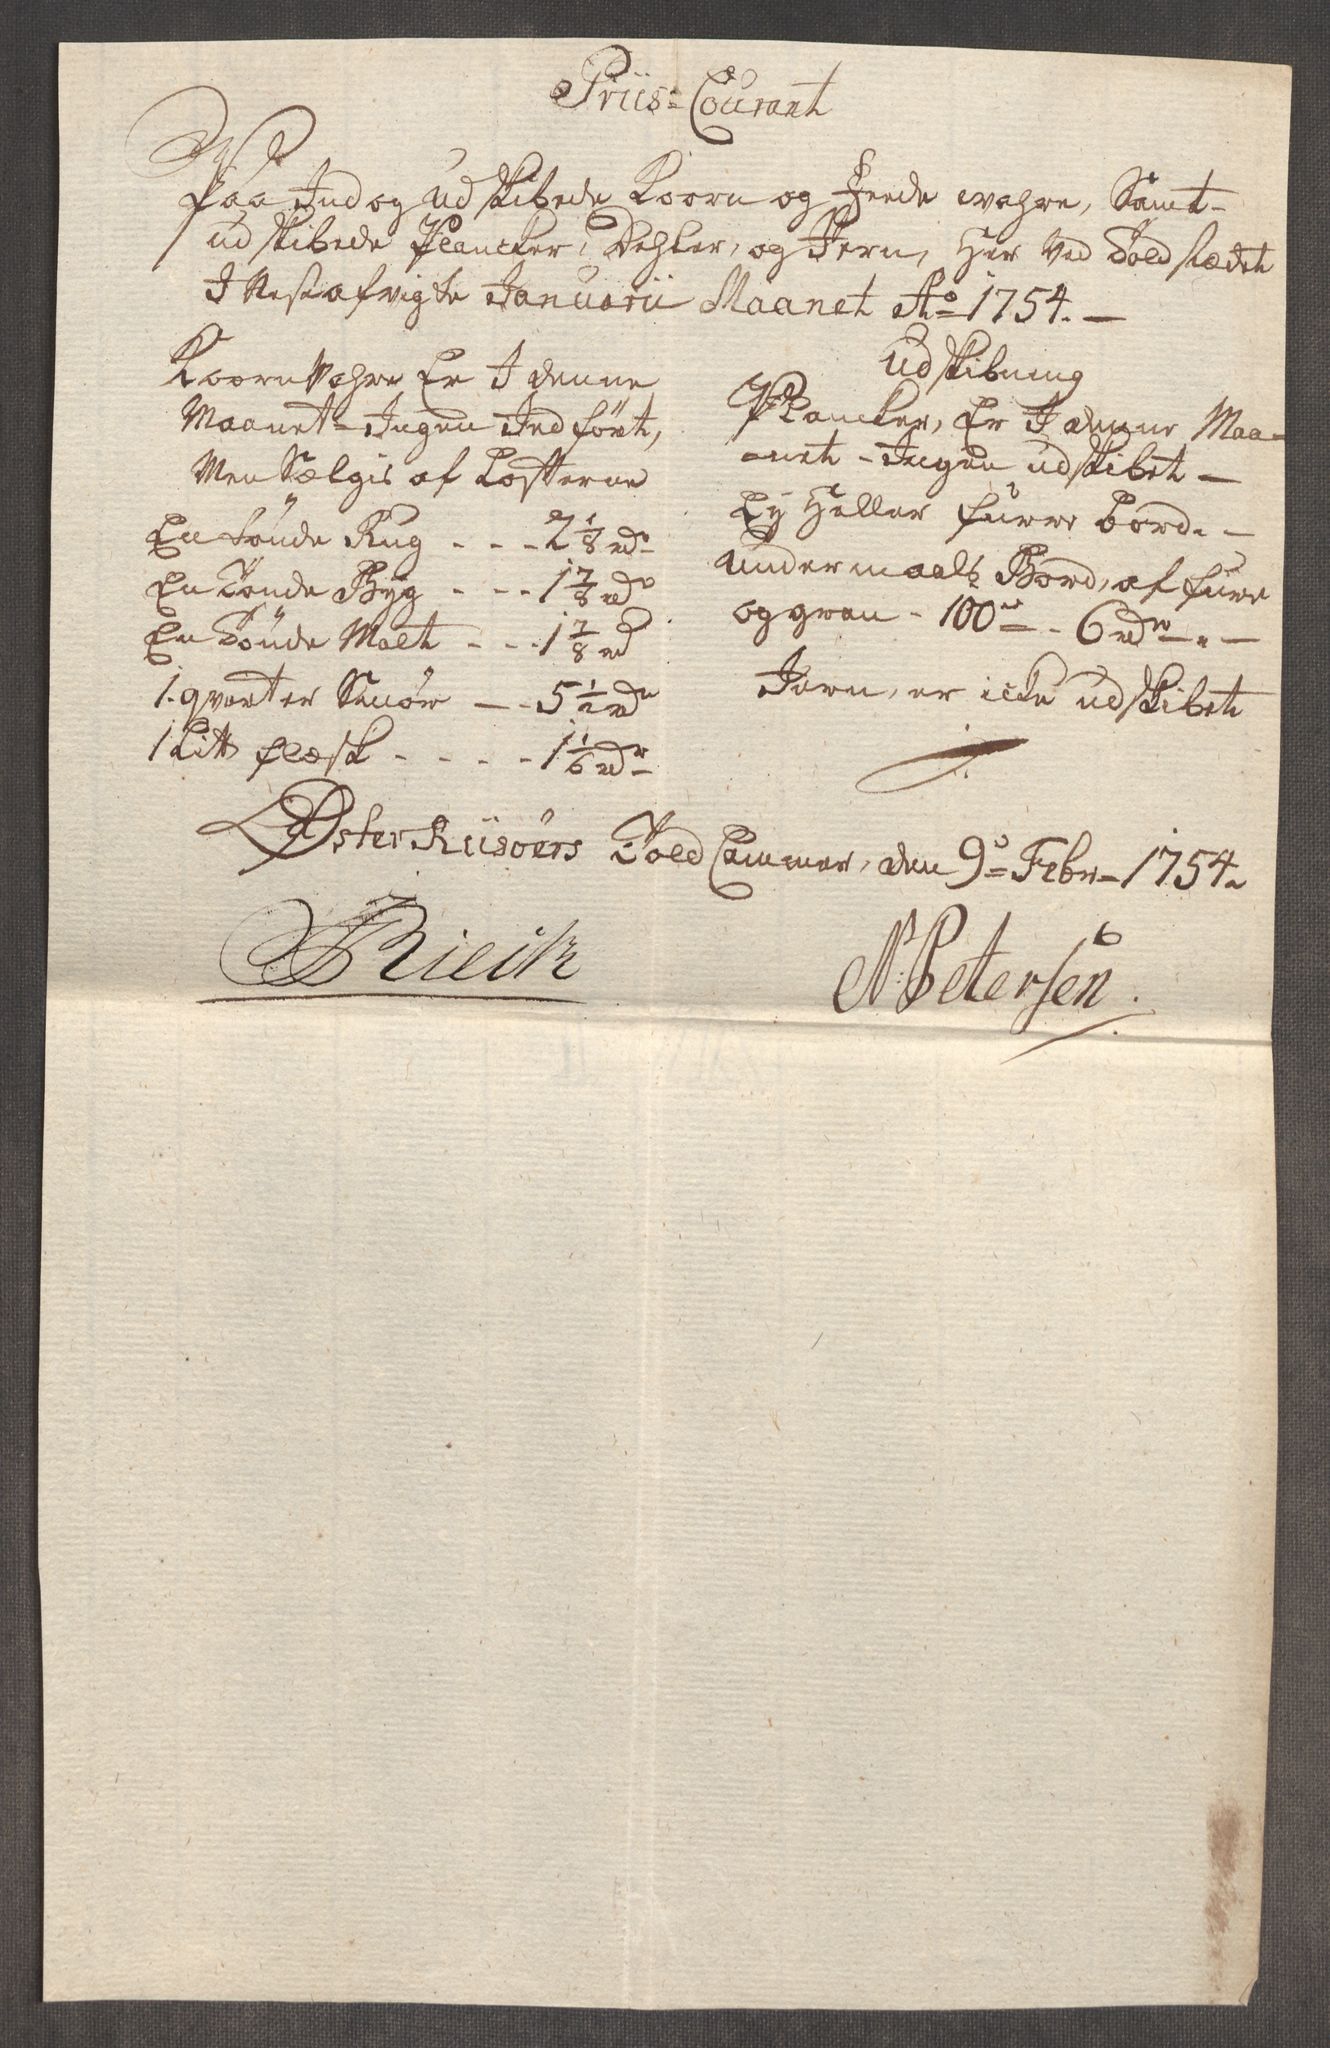 Priis=Courant
Paa Ind og Udskibede Koorn og Feede wahre, Samt-
udskibede Plancker, Dehler, og Jern, Her Ved Toldstædet
I Nest afvigte Januarii Maanet Ao 1754. —
Koorn Vahre Er I denne
Maanet - Ingen Indført,
Men Sælgis af Losterne
En Tønde Rug - - - 2 1/8 rdr
En Tønde Byg - - - 1 7/8 rdr
En Tønde Malt - - - 1 7/8 rd
1. qvarter Smør — - 5 1/2 rdr
1 Litt flæsk - - - - - 1 1/6 rdr
Udskibning
Plancker, Er I denne Maa-
-net - Ingen udskibet —
Ey Heller furre bord. —
Undermaals Bord, af furre
og gran - 100de - 6 rdr. —
Jern, er icke udskibet
Øster Riisøers Told Cammer, den 9de Febr 1754.
Rieck
N: Petersen.